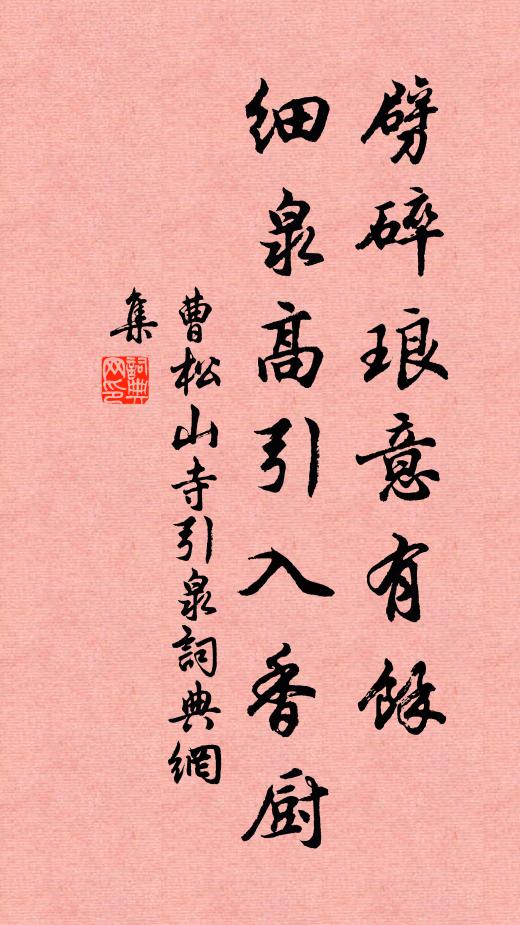 劈碎琅意有餘
細泉高引入香厨
曹松山寺引泉詞典網
集
詞典
网印